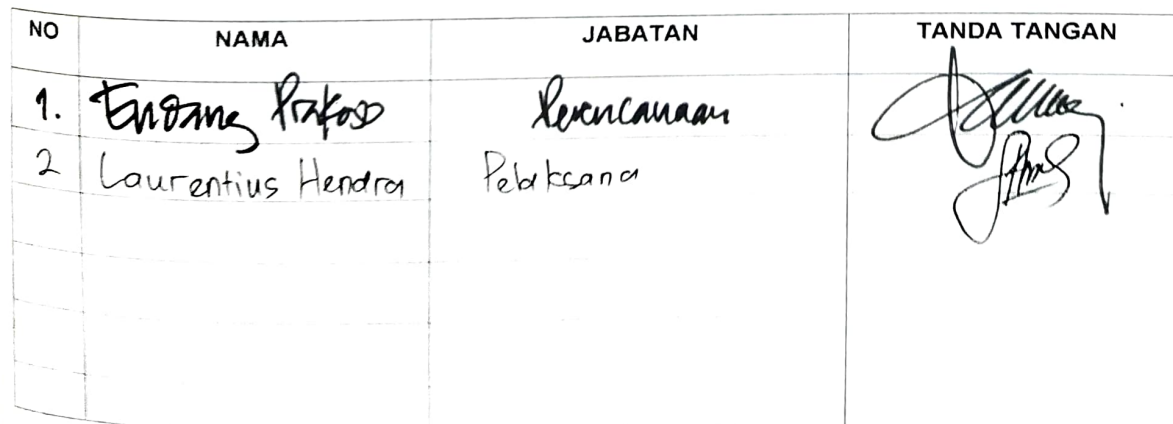 NO NAMA JABATAN TANDA TANGAN
1. Endang Prakoso Perencanaan
2 Laurentius Hendra Pelaksana